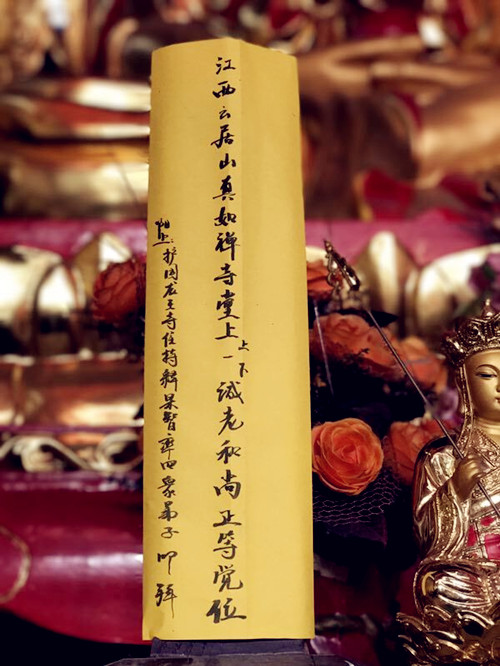 江西云居山真如禅寺堂上上一下诚老和尚正等觉位
阳上:护国龙王寺住持释杲智率四众弟子叩拜